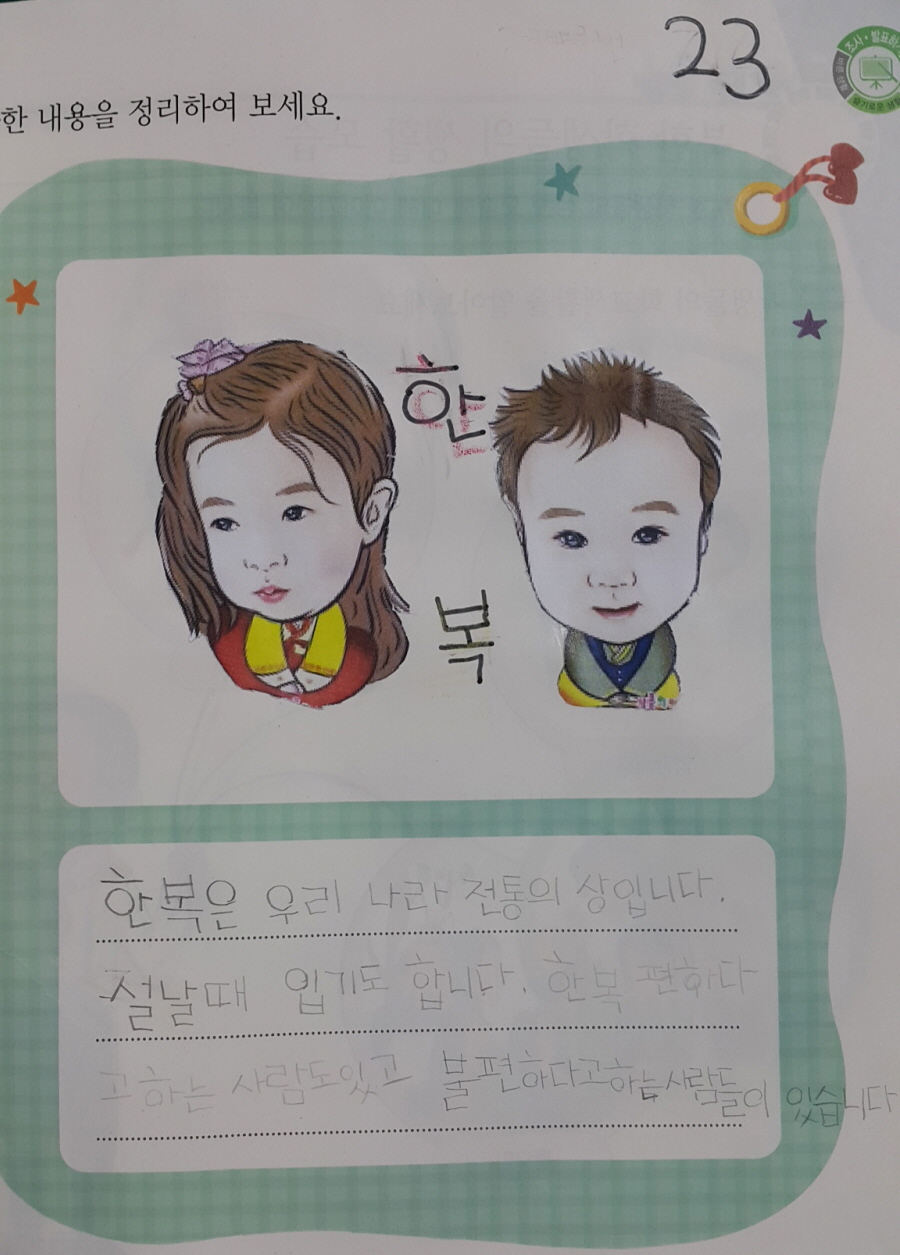 23
한 내용을 정리하여 보세요.
한
복
한복은 우리 나라 전통의 상입니다.
설날때 입기도 합니다. 한복 편하다
고 하는 사람도있고 불편하다고하는사람들이 있습니다